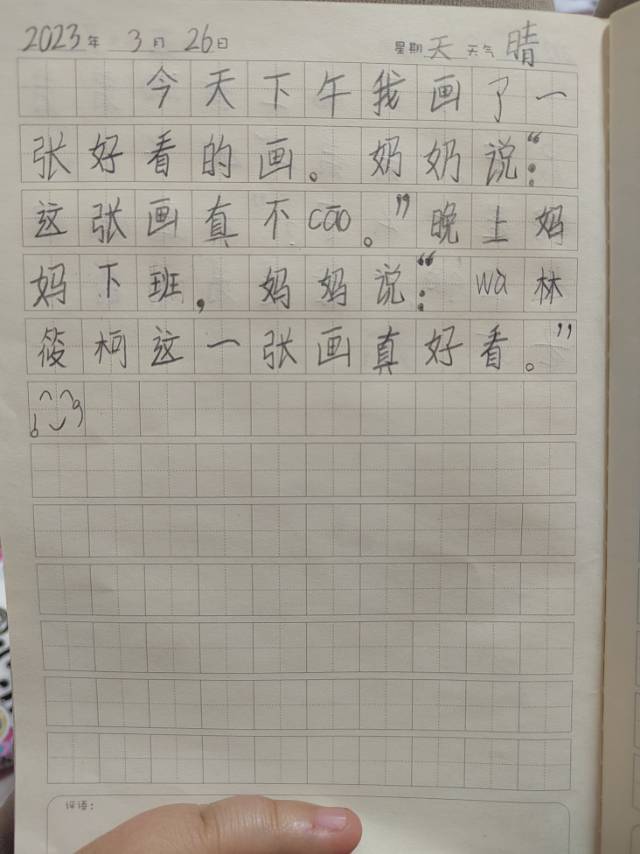 2023年 3月 26日 星期 天 天气 晴
今天下午我画了一
张好看的画。奶奶说：“
这张画真不cāo。”晚上妈
妈下班，妈妈说：“wà林
筱柯这一张画真好看。”
评语：